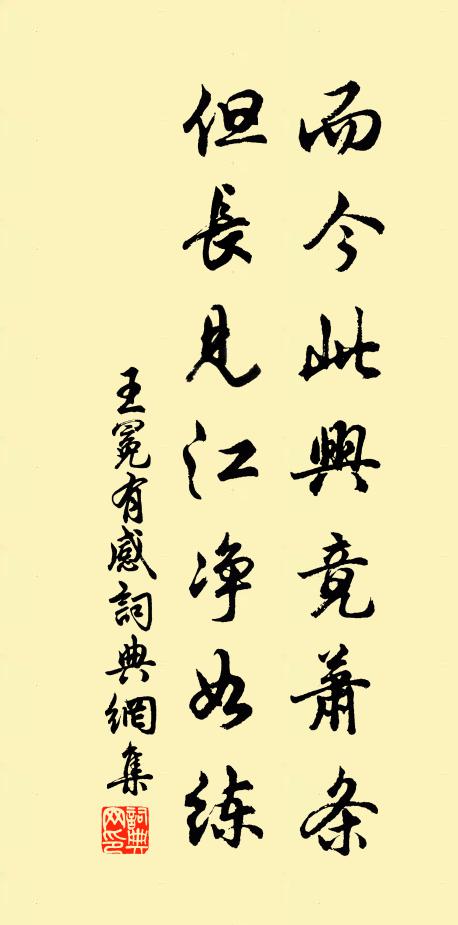 而今此興竟蕭条
但長見江浄如練
王冕有感詞典網集
詞典網印